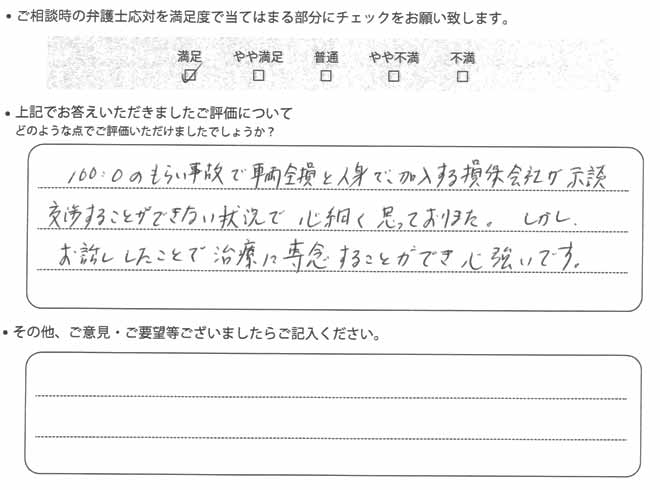 • ご相談時の弁護士応対を満足度で当てはまる部分にチェックをお願い致します。
満足 やや満足 普通 やや不満 不満
☑ □ □ □ □
• 上記でお答えいただきましたご評価について
どのような点でご評価いただけましたでしょうか？
100:0のもらい事故で車両全損と人身で、加入する損保会社が示談
交渉することができない状況で心細く思っておりました。しかし、
お話ししたことで治療に専念することができ心強いです。
• その他、ご意見・ご要望等ございましたらご記入ください。